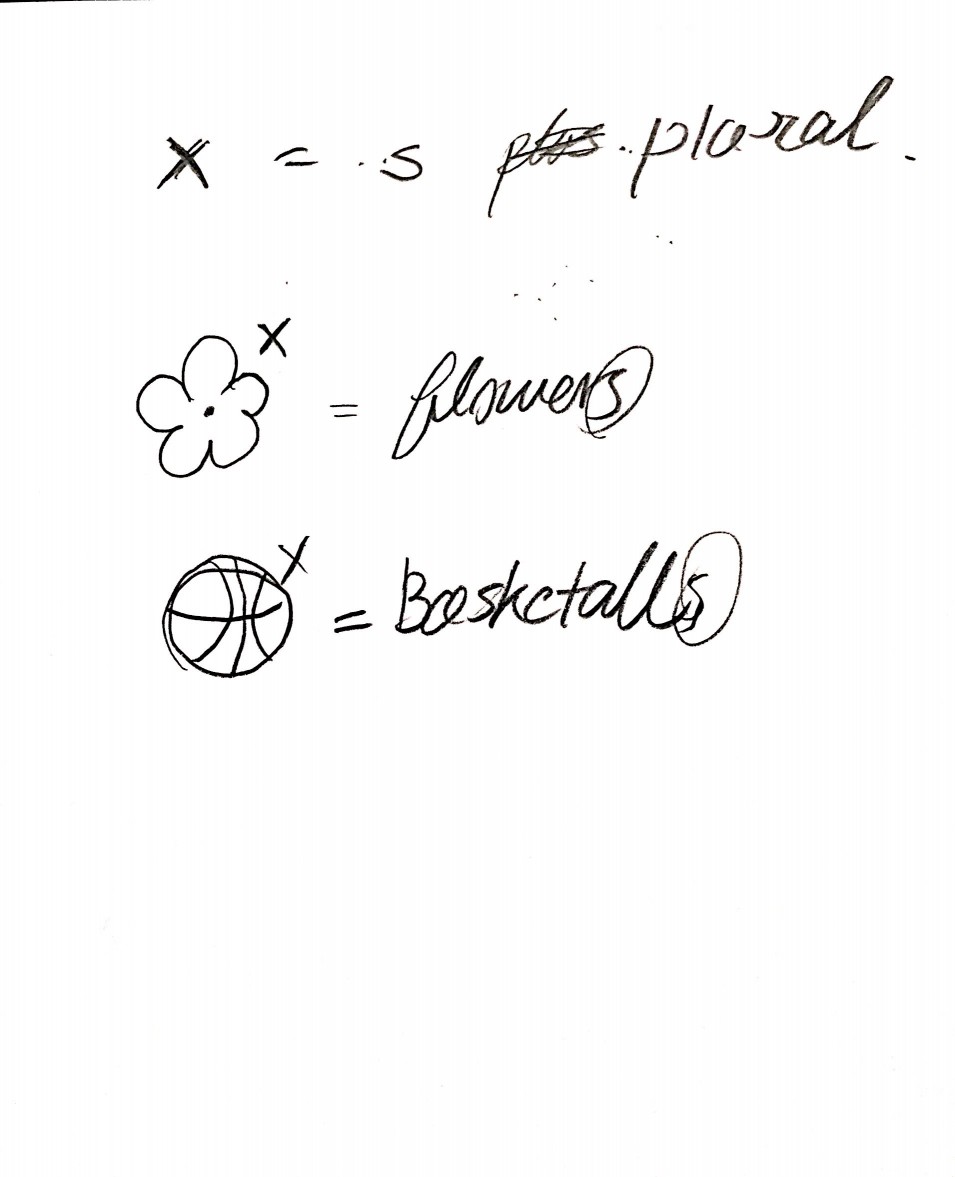 x = s plural.
x = flowers
x = Basketalls